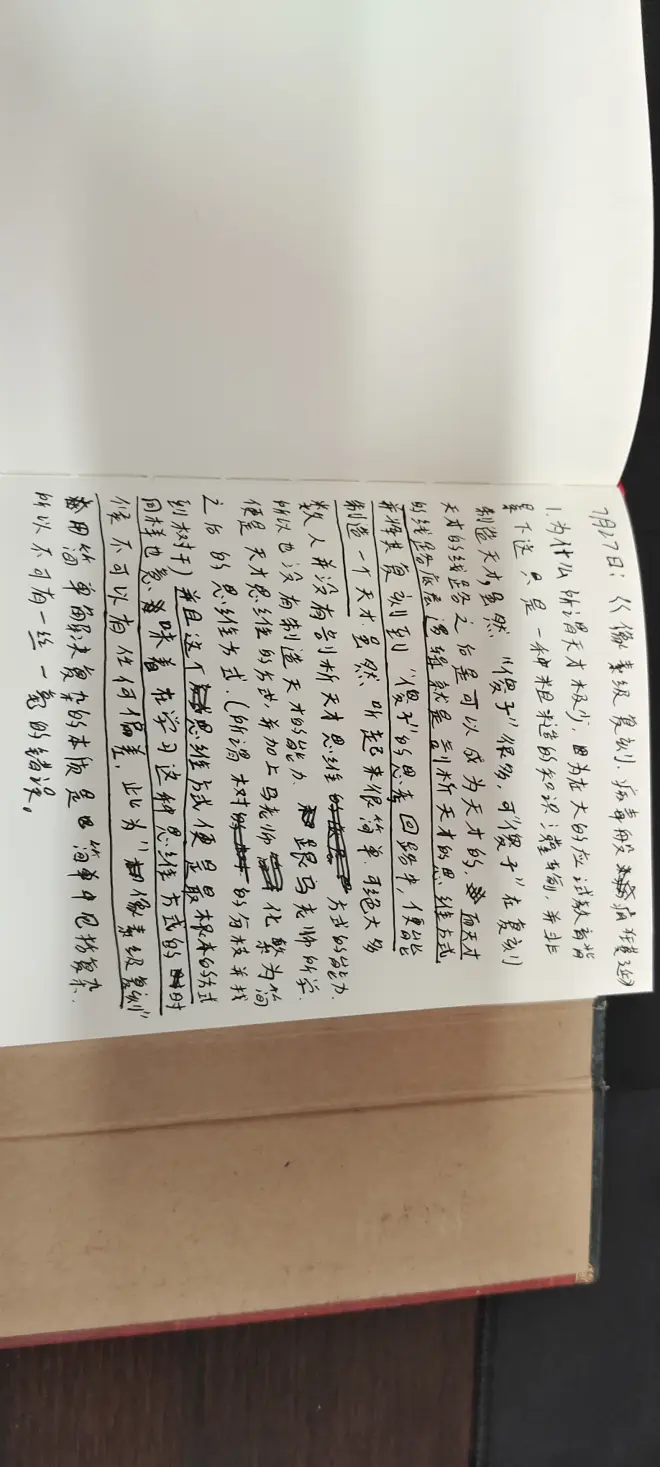 7月27日：《像素级复刻，病毒般疯狂蔓延》
1.为什么所谓天才极少，因为在大的应试教育背
景下这只是一种粗糙的知识，并非
制造天才，虽然“傻子”很多，可“傻子”在复刻
天才的线路之后是可以成为天才的，而天才
的线路底层逻辑就是剖析天才的思维方式
并将其复刻到“傻子”的思考回路中，便能
制造一个天才虽然听起来很简单可绝大多
数人并没有剖析天才思维方式的能力.
所以也没有制造天才的能力. 跟马老师所学.
便是天才思维的方式，并加上马老师化繁为简
之后的思维方式.（所谓树的分枝并找
到树干）并且这个思维方式便是最根本的方式
同样也意味着在学习这种思维方式的时
候不可以有任何偏差，此为“像素级复刻”
用简单解决复杂的本质是简单中包括复杂.
所以不可有一丝一毫的错误。